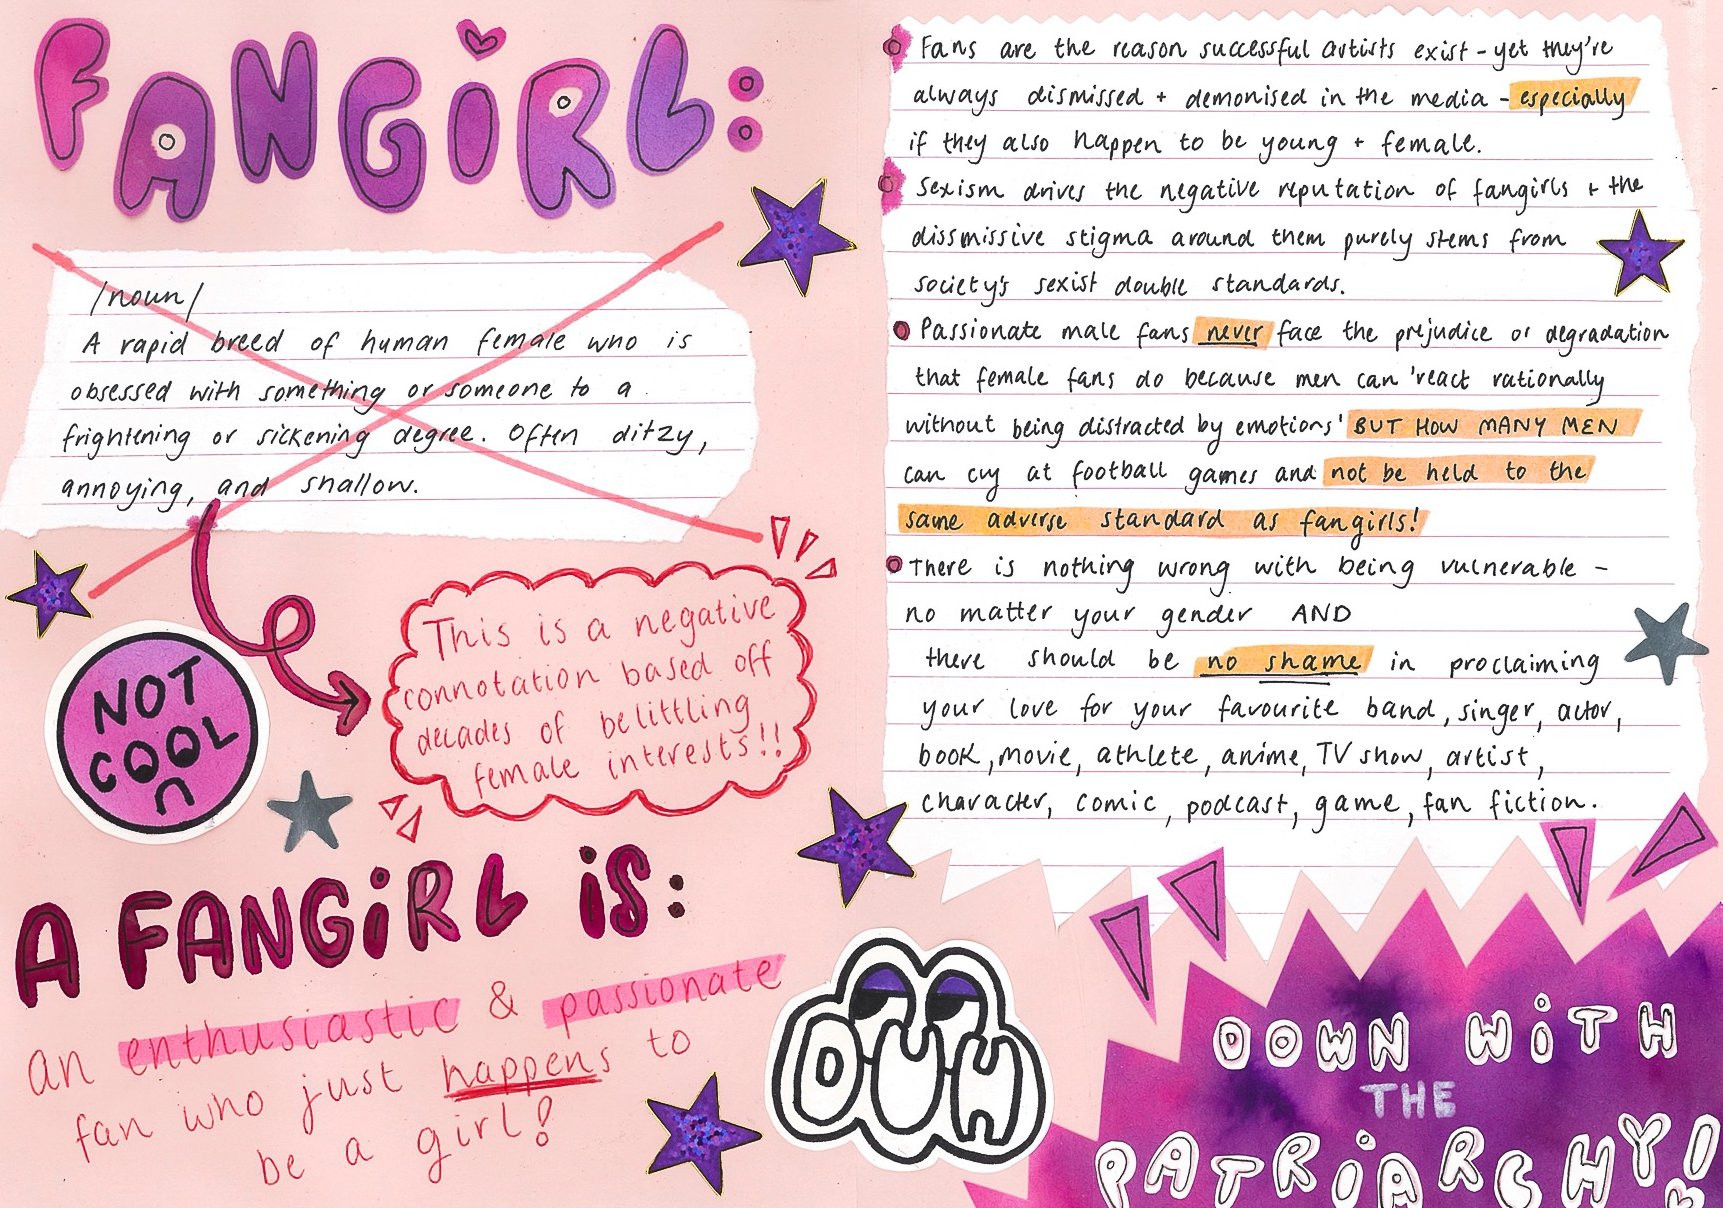 FANGIRL:
/noun/
A rapid breed of human female who is
obsessed with something or someone to a
frightening or sickening degree. Often ditzy,
annoying, and shallow.
This is a negative
connotation based off
decades of belittling
female interests!!
NOT
COOL
A FANGIRL IS:
an enthusiastic & passionate
fan who just happens to
be a girl!
Fans are the reason successful artists exist - yet they're
always dismissed + demonised in the media - especially
if they also happen to be young + female.
Sexism drives the negative reputation of fangirls + the
dissmissive stigma around them purely stems from
society's sexist double standards.
Passionate male fans never face the prejudice or degradation
that female fans do because men can 'react rationally
without being distracted by emotions' BUT HOW MANY MEN
can cry at football games and not be held to the
same adverse standard as fangirls!
There is nothing wrong with being vulnerable -
no matter your gender AND
there should be no shame in proclaiming
your love for your favourite band, singer, actor,
book, movie, athlete, anime, TV show, artist,
character, comic, podcast, game, fan fiction.
DUH
DOWN WITH
THE
PATRIARCHY!